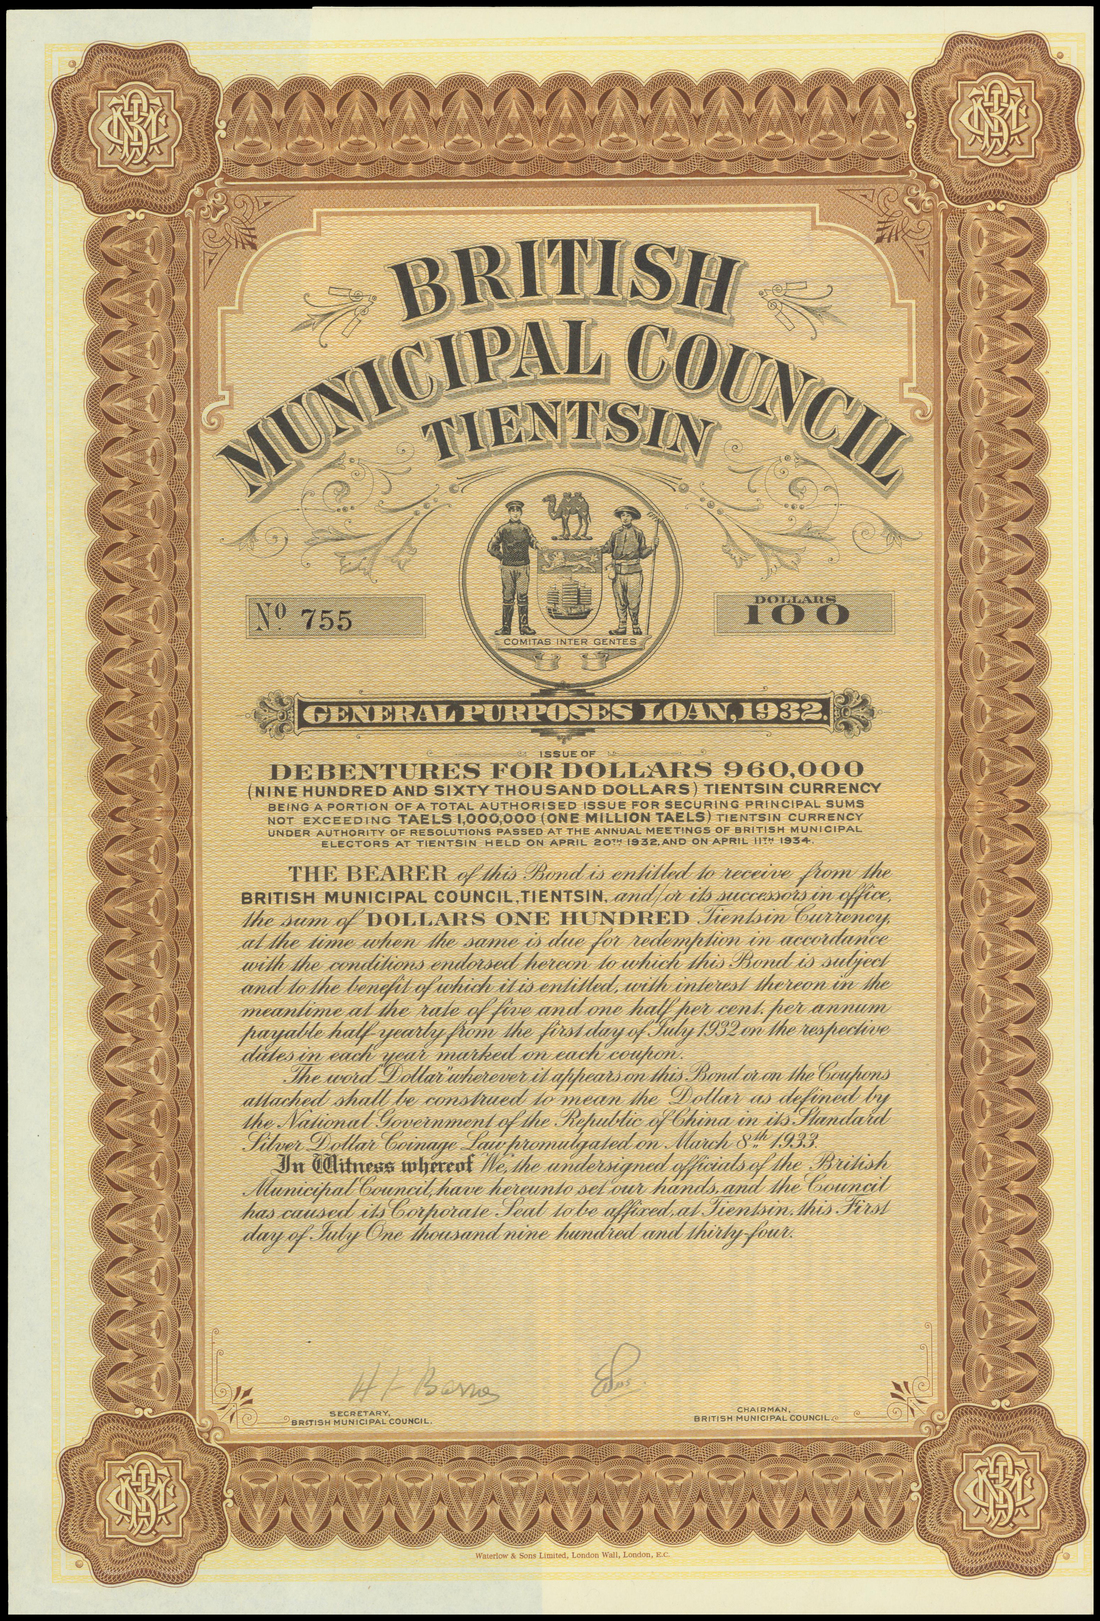 BRITISH
MUNICIPAL COUNCIL
TIENTSIN
COMITAS INTER GENTES
Nº 755
DOLLARS
100
GENERAL PURPOSES LOAN, 1932.
ISSUE OF
DEBENTURES FOR DOLLARS 960,000
(NINE HUNDRED AND SIXTY THOUSAND DOLLARS) TIENTSIN CURRENCY
BEING A PORTION OF A TOTAL AUTHORISED ISSUE FOR SECURING PRINCIPAL SUMS
NOT EXCEEDING TAELS 1,000,000 (ONE MILLION TAELS) TIENTSIN CURRENCY
UNDER AUTHORITY OF RESOLUTIONS PASSED AT THE ANNUAL MEETINGS OF BRITISH MUNICIPAL
ELECTORS AT TIENTSIN HELD ON APRIL 20TH 1932, AND ON APRIL 11TH 1934.
THE BEARER of this Bond is entitled to receive from the
BRITISH MUNICIPAL COUNCIL, TIENTSIN, and/or its successors in office,
the sum of DOLLARS ONE HUNDRED Tientsin Currency,
at the time when the same is due for redemption in accordance
with the conditions endorsed hereon to which this Bond is subject
and to the benefit of which it is entitled, with interest thereon in the
meantime at the rate of five and one half per cent. per annum
payable half-yearly from the first day of July 1932 on the respective
dates in each year marked on each coupon.
The word "Dollar" wherever it appears on this Bond or on the Coupons
attached shall be construed to mean the Dollar as defined by
the National Government of the Republic of China in its Standard
Silver Dollar Coinage Law promulgated on March 8th 1933.
In Witness whereof We, the undersigned officials of the British
Municipal Council, have hereunto set our hands, and the Council
has caused its Corporate Seal to be affixed, at Tientsin, this First
day of July One thousand nine hundred and thirty-four.
SECRETARY,
BRITISH MUNICIPAL COUNCIL.
CHAIRMAN,
BRITISH MUNICIPAL COUNCIL.
Waterlow & Sons Limited, London Wall, London, E.C.